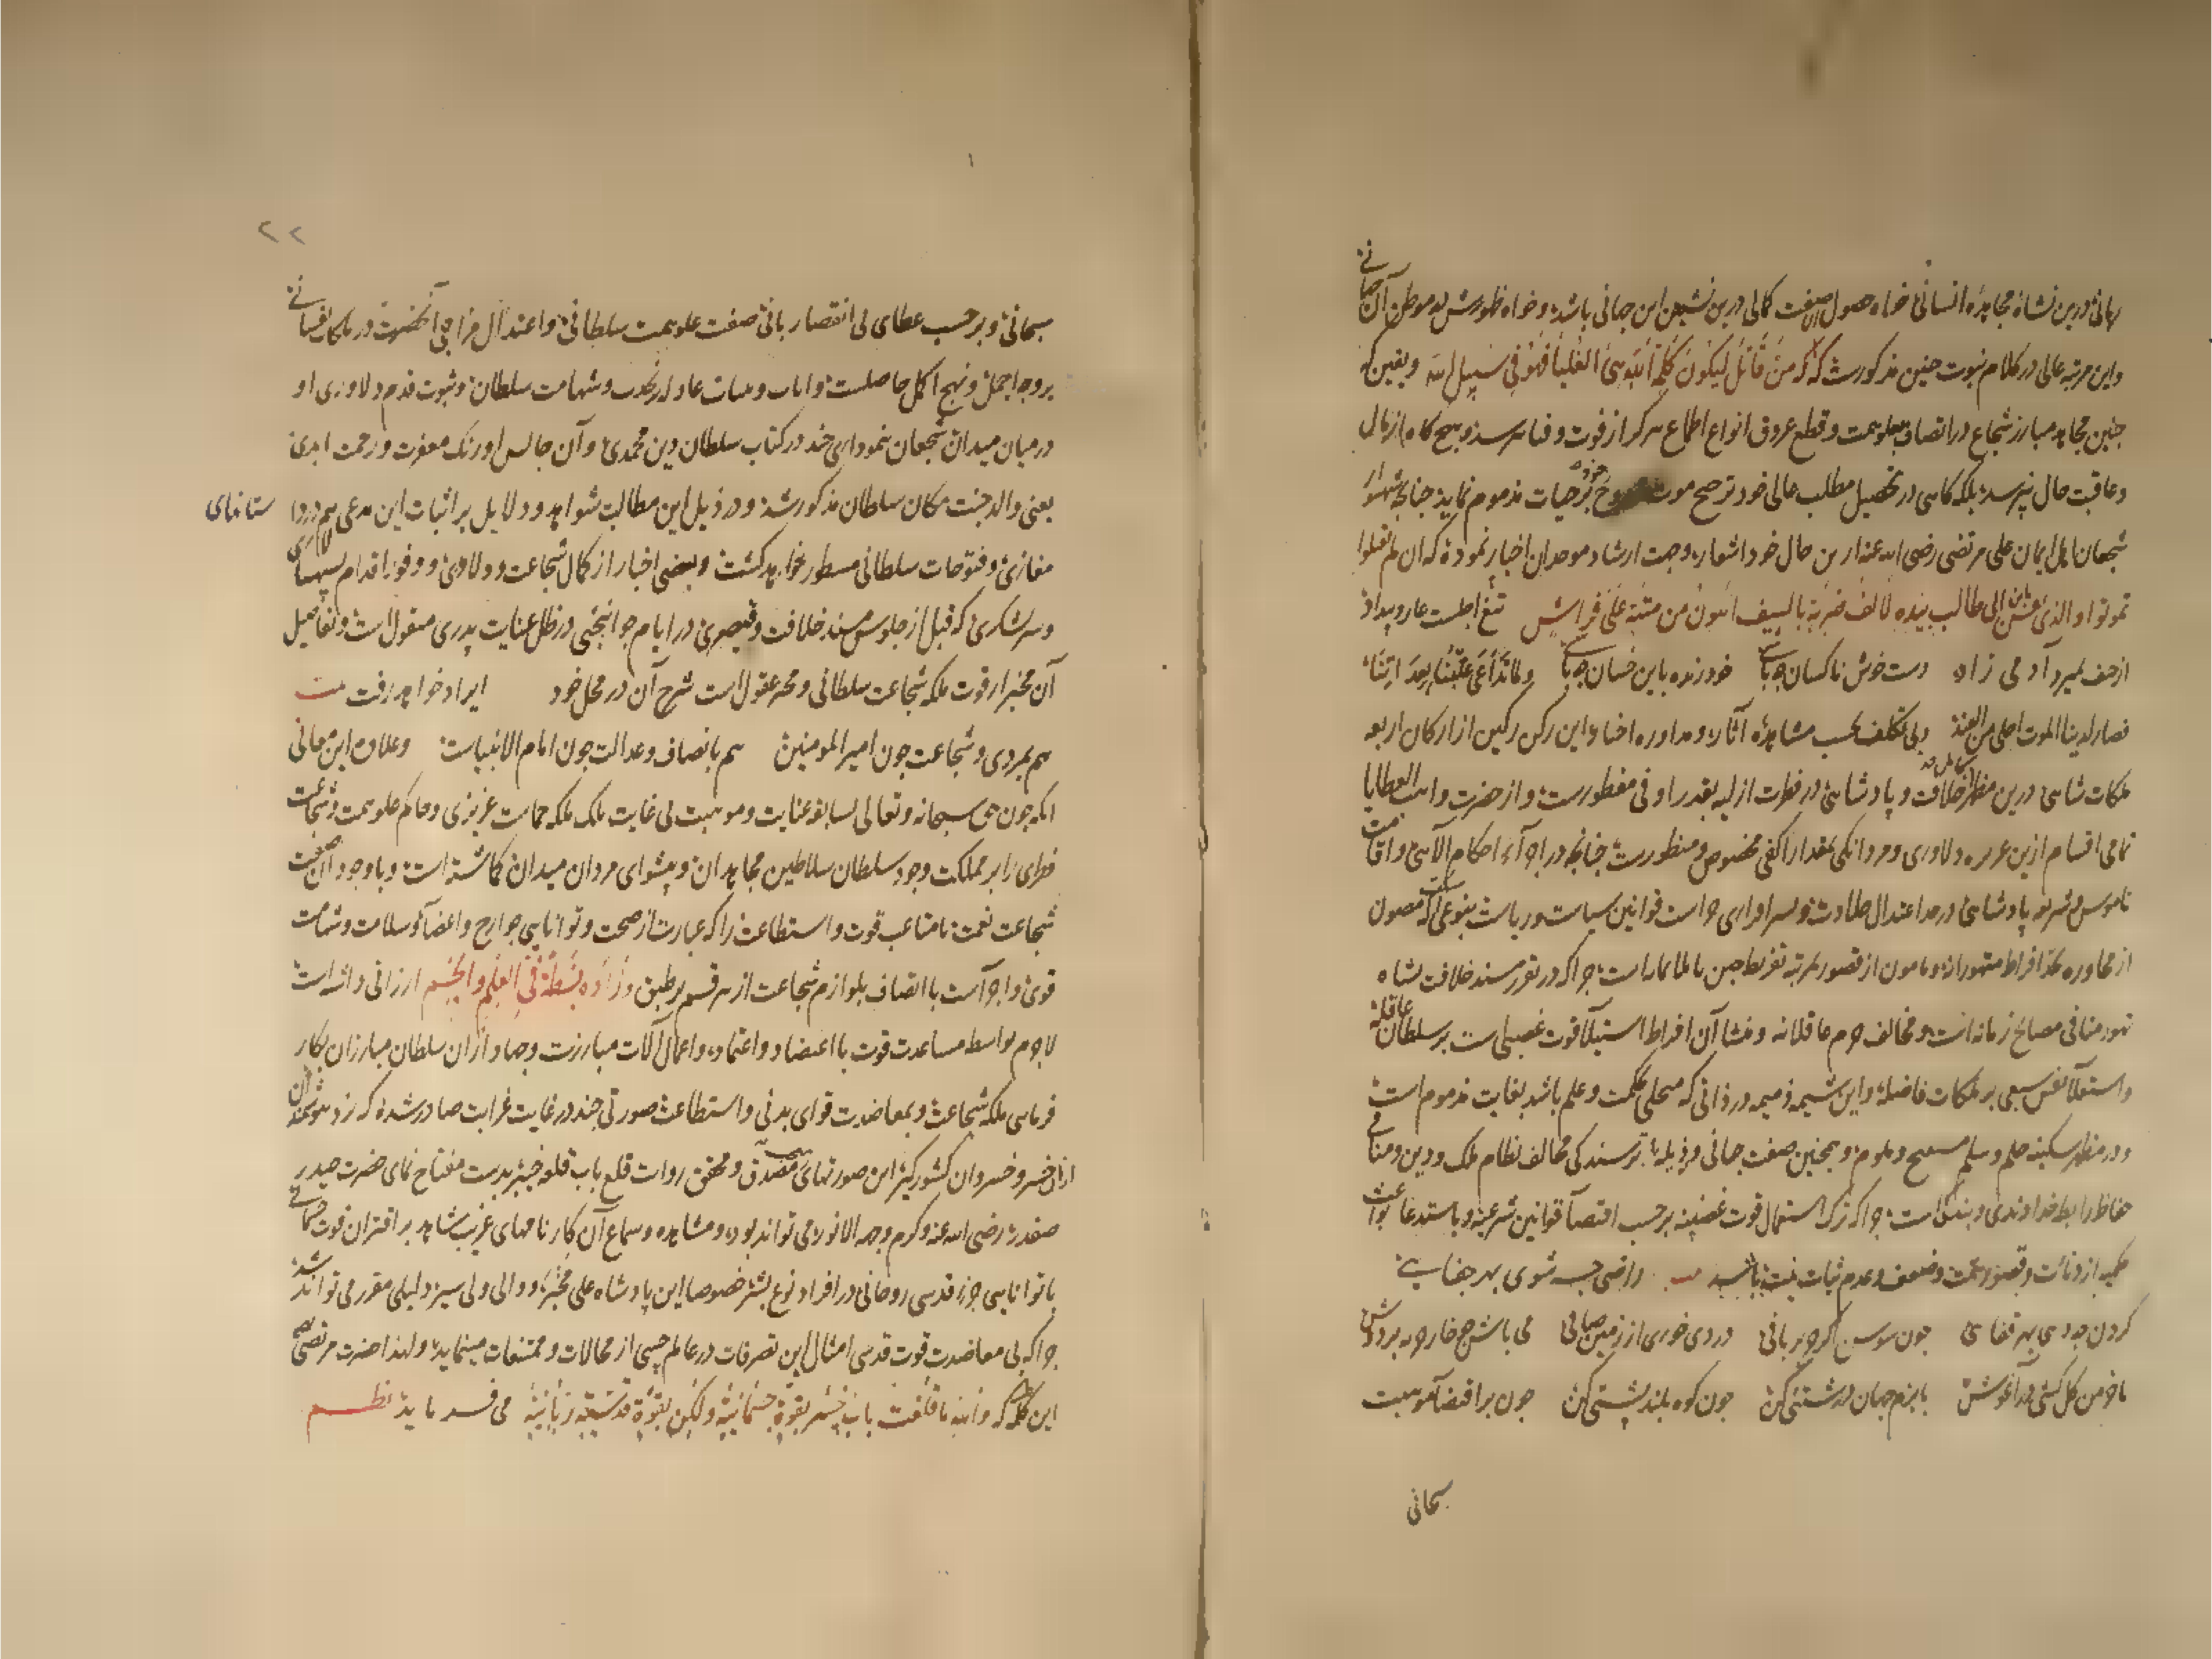 ربانی درین نشاهٔ مجاهدهٔ انسانی خواه حصول صفت کمالی درین نشیمن این جهانی باشد و خواه ظهورش به موطن آن جهانی
واین مرتبه عالی در کلام نبوت چنین مذکورست که مَن قاتَلَ لیکونَ کلمة اللّه هیَ العُلیا فهو فی سبیل اللّه ویقین که
چنین مجاهد مبارز شجاع در اتصاف بعلو همت وقطع عروق انواع اطماع هرگز از فوت و فنا نترسد و هیچ گاه از مال
وعاقبت حال نپرسد بلکه گاهی در تحصیل مطلب عالی خود ترجیح موت بر حیات مذموم نماید چنانچه شهسوار
شجعان اهل ایمان علی مرتضی رضی الله عنه از من حال خود اشعار وجهت ارشاد موحدان اخبار نموده که ان لم تقتلوا
تموتوا والذی نفس ابن ابی طالب بیده لألف ضربة بالسیف اهون من میتة علی فراش تیغ اجلست عار و بیداد
از حیف بمیرد آدمی زاد دست خوش ناکسان چه باشی خود زنده باین خسان چه باشی
فصار لدینا الموت احلی من وبی تکلف بحسب مشاهدهٔ آثار و مداوره اخبار این رکن رکین از ارکان اربعه
ملکات شاهی درین مظهر خلافت و پادشاهی در فطرت ازلیه بقدر اوفی مفطورست و از حضرت واهب العطایا
تمامی اقسام ازین دلاوری و مردانگی بمقدار اکفی مخصوص و منظورست چنانچه در اجرآء احکام الآهی و اقامت
ناموس شریعه پادشاهی در حد اعتدال جلادت و سزاواری حراست قوانین سیاست و ریاست بنوعیکه مصون
از مجاوره بحد افراط متهورانه و مامون از قصور بمرتبه تفریط جبن است چراکه در تقرر مسند خلافت پناه
تهور منافی مصالح زمانه است و مخالف حزم عاقلانه و منشا آن افراط استیلآ قوت غضبی است بر سلطان عاقله
واستعلآ نفس سبعی بر ملکات فاضله واین شیمه ذمیمه در ذاتی که محلی بحکمت و علم باشد بغایت مذموم است
و در منظر سکینه حلم و سلم مستقبح و ملوم و همچنین صفت جبانی و رذیله ترسندگی مخالف نظام ملک و دین و منافی
حفاظ رابطه خداوندی و بندگی است چراکه ترک استعمال قوت غضبیه برحسب اقتضآ قوانین شرعیه و باستدعآ بواعث
حکمیه از دنائت و قصور همت و ضعف و عدم ثبات نیت باشد بیت راضی چه شوی بهر جفایی
گردن چه دهی بهر قفایی چون سوسن اگر حریر بافی دردی خوری از زمین صافی می باش چو خار حربه بر دوش
تا خرمن گل کشی در آغوش با بزم جهان درشتئی کن چون کوه بلند پشتئی کن چون بر اقتضآ موهبت
سبحانی
۲۲
سبحانی و برحسب عطای بی انقضا ربانی صفت علو همت سلطانی و اعتدال مزاجی آنحضرت در ملکات نفسانی
بر وجه اجمل و نهج اکمل حاصلست و شهامت سلطان و ثبوت قدم و دلاوری او
در میان میدان شجعان نموداری چند در کتاب سلطان دین محمدی و آن جالس اورنک مغفرت و رحمت ابدی
یعنی والد جنت مکان سلطان مذکور شد و در ذیل این مطالب شواهد و دلایل بر اثبات این مدعی هم در داستانهای
مغازی و فتوحات سلطانی مسطور خواهد گشت و بعضی اخبار از کمال شجاعت و دلاوری و وفور اقدام بسپهسالاری
و سرلشکری که قبل از جلوس مسند خلافت و قیصری در ایام جوانبختی در ظل عنایت پدری منقول است و تفاصیل
آن مخبر از قوت ملکه شجاعت سلطانی و محیر عقول است شرح آن در محل خود ایراد خواهد رفت بیت
هم بمردی و شجاعت چون امیر المومنین هم بانصاف و عدالت چون امام الانبیاست وعلاوه این معانی
آنکه چون حق سبحانه و تعالی بسابقه عنایت و موهبت بی غایت ملک ملکه حمایت غریزی و حاکم علو همت و شجاعت
فطری را بر مملکت وجود سلطان سلاطین مجاهدان و پیشوای مردان میدان گماشته است و باوجود آن صفت
شجاعت نعمت قوت و استطاعت را که عبارت از صحت و توانایی جوارح و اعضآ و سلامت
قوی و اجزآست با اتصاف بلوازم شجاعت از هر قسم بر طبق وزاده بسطة فی العلم والجسم ارزانی داشته است
لاجرم بواسطه مساعدت قوت با اعتضاد و اعتماد و اعمال آلات مبارزت و جهاد از آن سلطان مبارزان بکار
فرمایی ملکه شجاعت و بمعاضدت قوای بدنی و استطاعت صورتی چند در غایت غرابت صادر شده که نزد هوشمندان
از آن خسرو خسروان کشورگیر این صورتهای مصدق و محقق روات قلع باب قلعه خیبر بدست مفتاح نمای حضرت حیدر
صفدر رضی الله عنه و کرم وجهه الانور می تواند بود و مشاهده و سماع آن کارنامهای غریب شاهد بر اقتران قوت جسمانی
با توانایی جزء قدسی روحانی در افراد نوع بشر خصوصا این پادشاه علی مخبر و والی ولی سیر دلیلی مقرر می تواند شد
چراکه بی معاضدت قوت قدسی امثال این تصرفات در عالم حسی از محالات و ممتنعات مینماید و لهذا حضرت مرتضی
این کلمه که والله ما قلعت باب خیبر بقوة جسمانیة ولکن بقوة قدسیة ربانیة می فرماید نظم